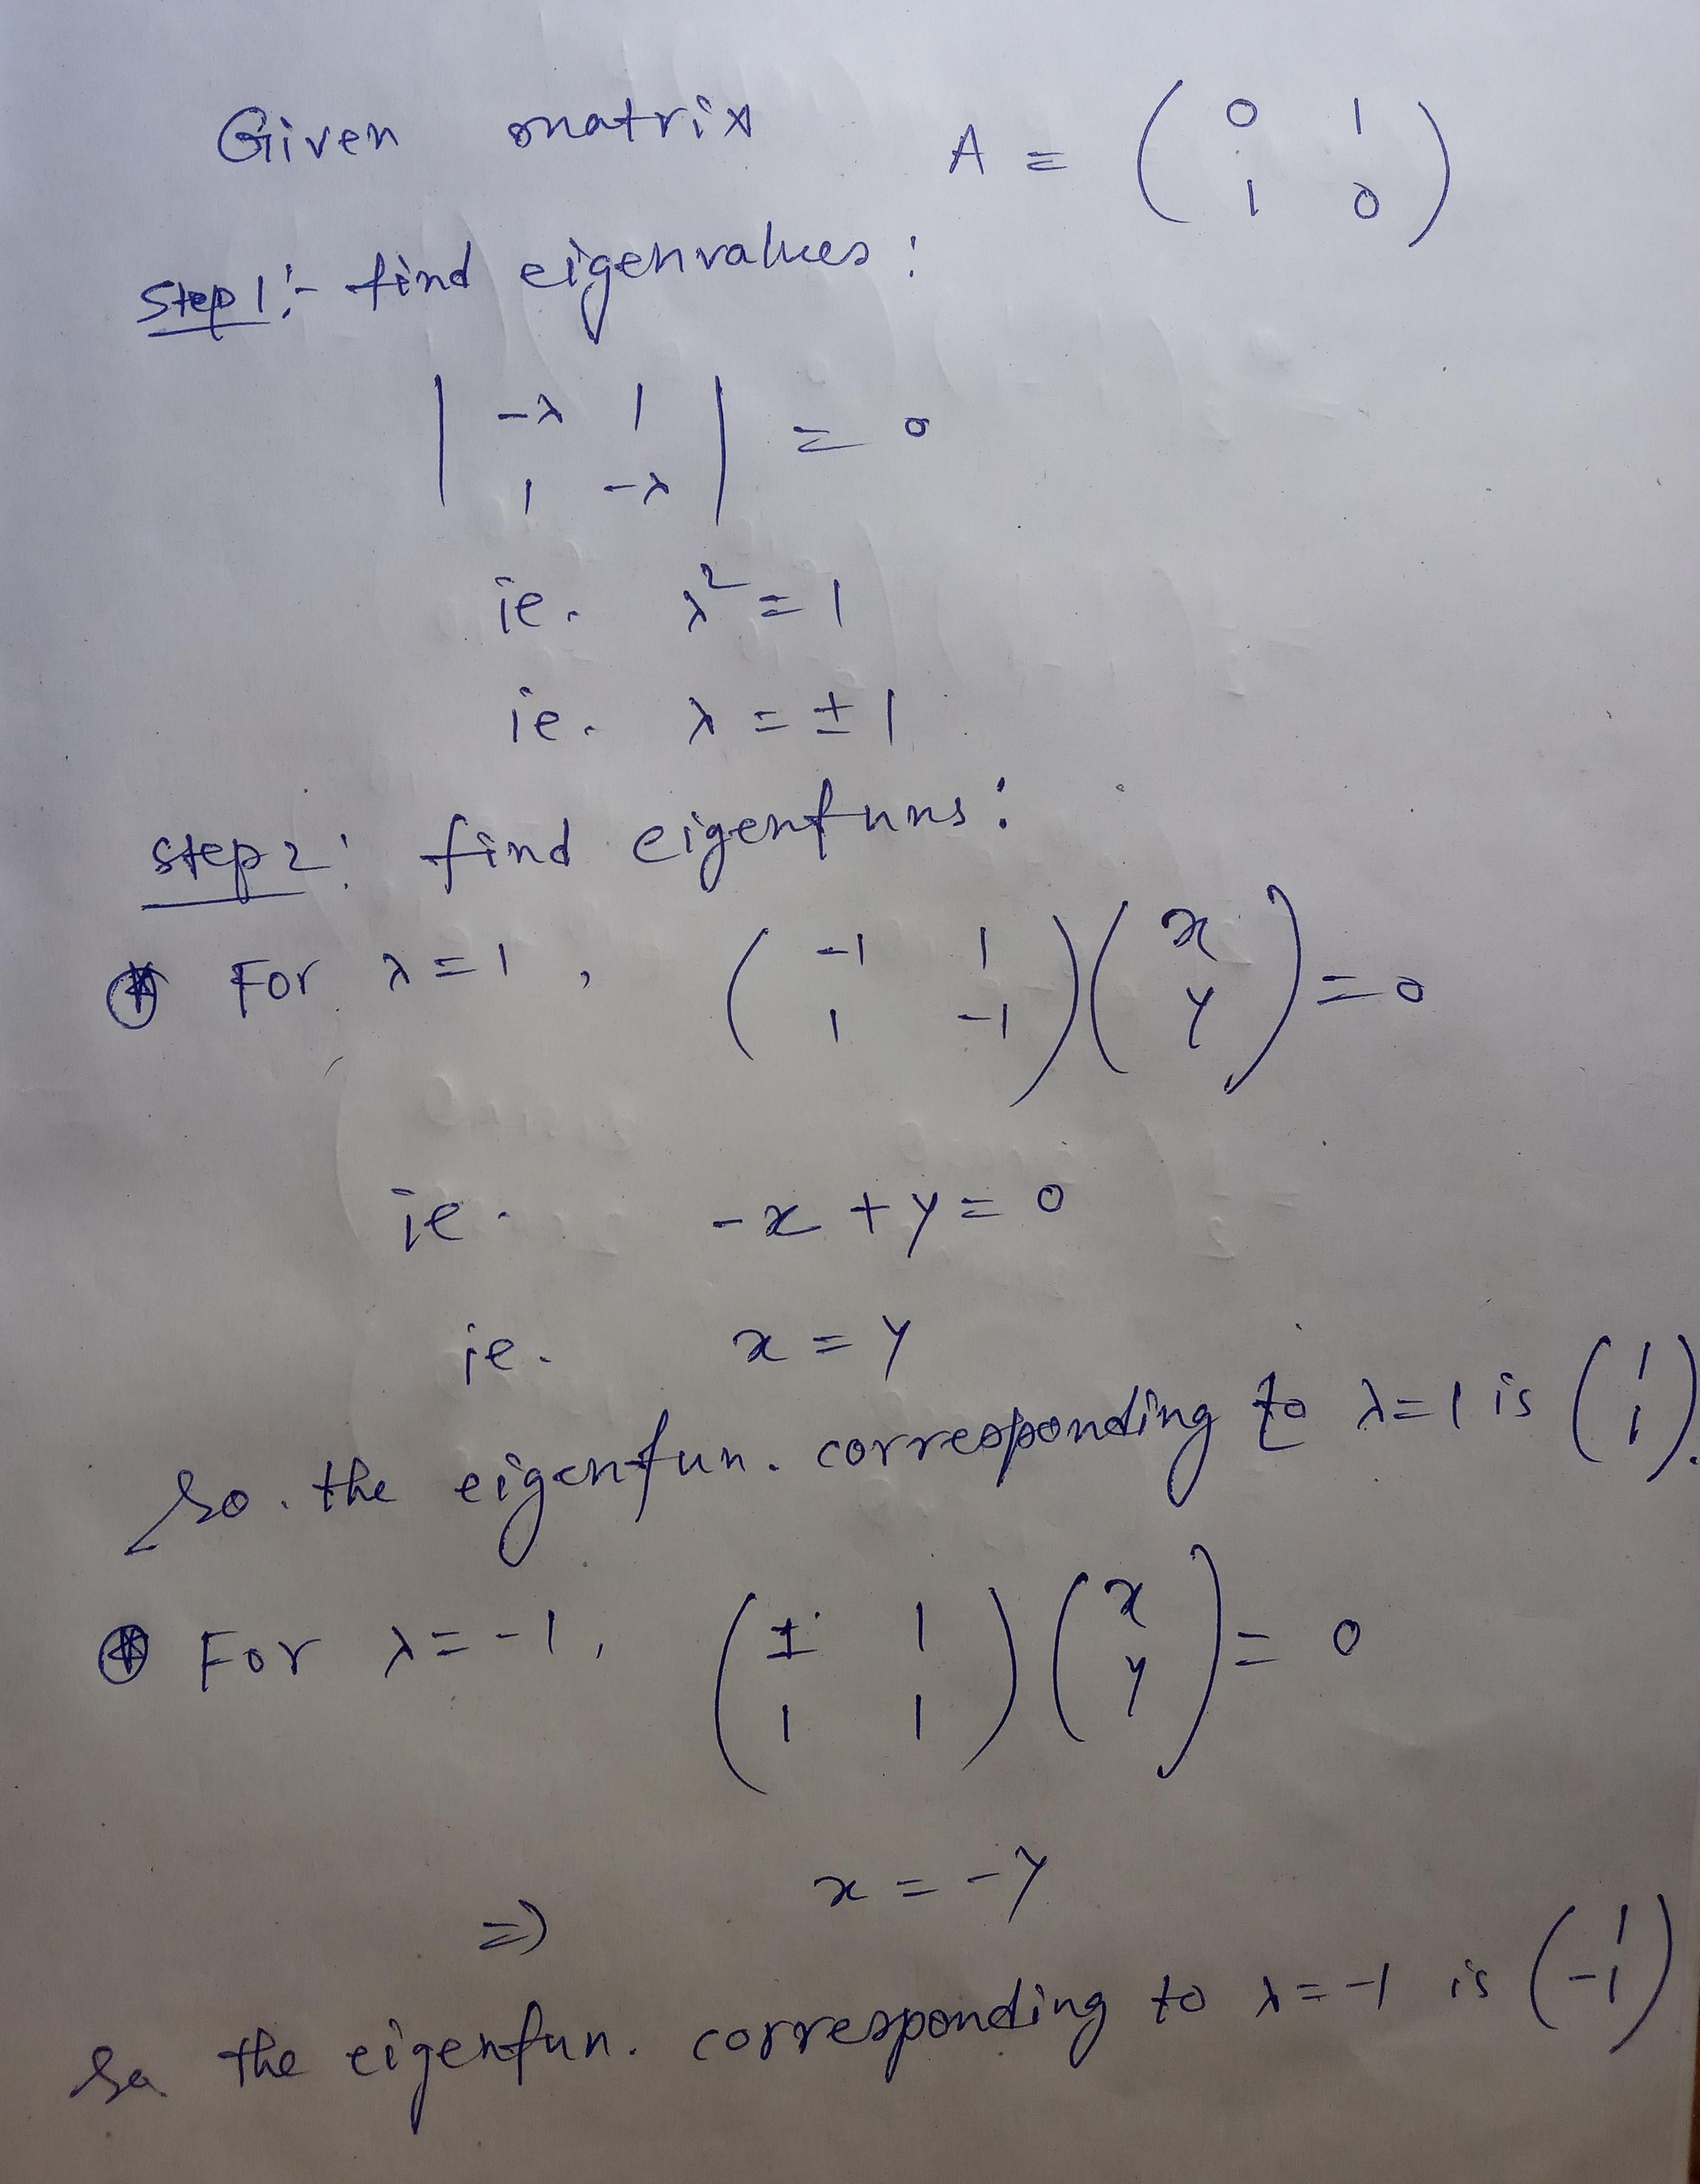 Given matrix A = ( 0 1 ; 1 0 )
Step 1:- find eigenvalues:
| -λ 1 ; 1 -λ | = 0
ie. λ² = 1
ie. λ = ± 1
Step 2: find eigenfuns:
⊛ For λ = 1, ( -1 1 ; 1 -1 ) ( x ; y ) = 0
ie. -x + y = 0
ie. x = y
So. the eigenfun. corresponding to λ=1 is ( 1 ; 1 ).
⊛ For λ = -1, ( 1 1 ; 1 1 ) ( x ; y ) = 0
=> x = -y
So the eigenfun. corresponding to λ = -1 is ( 1 ; -1 )